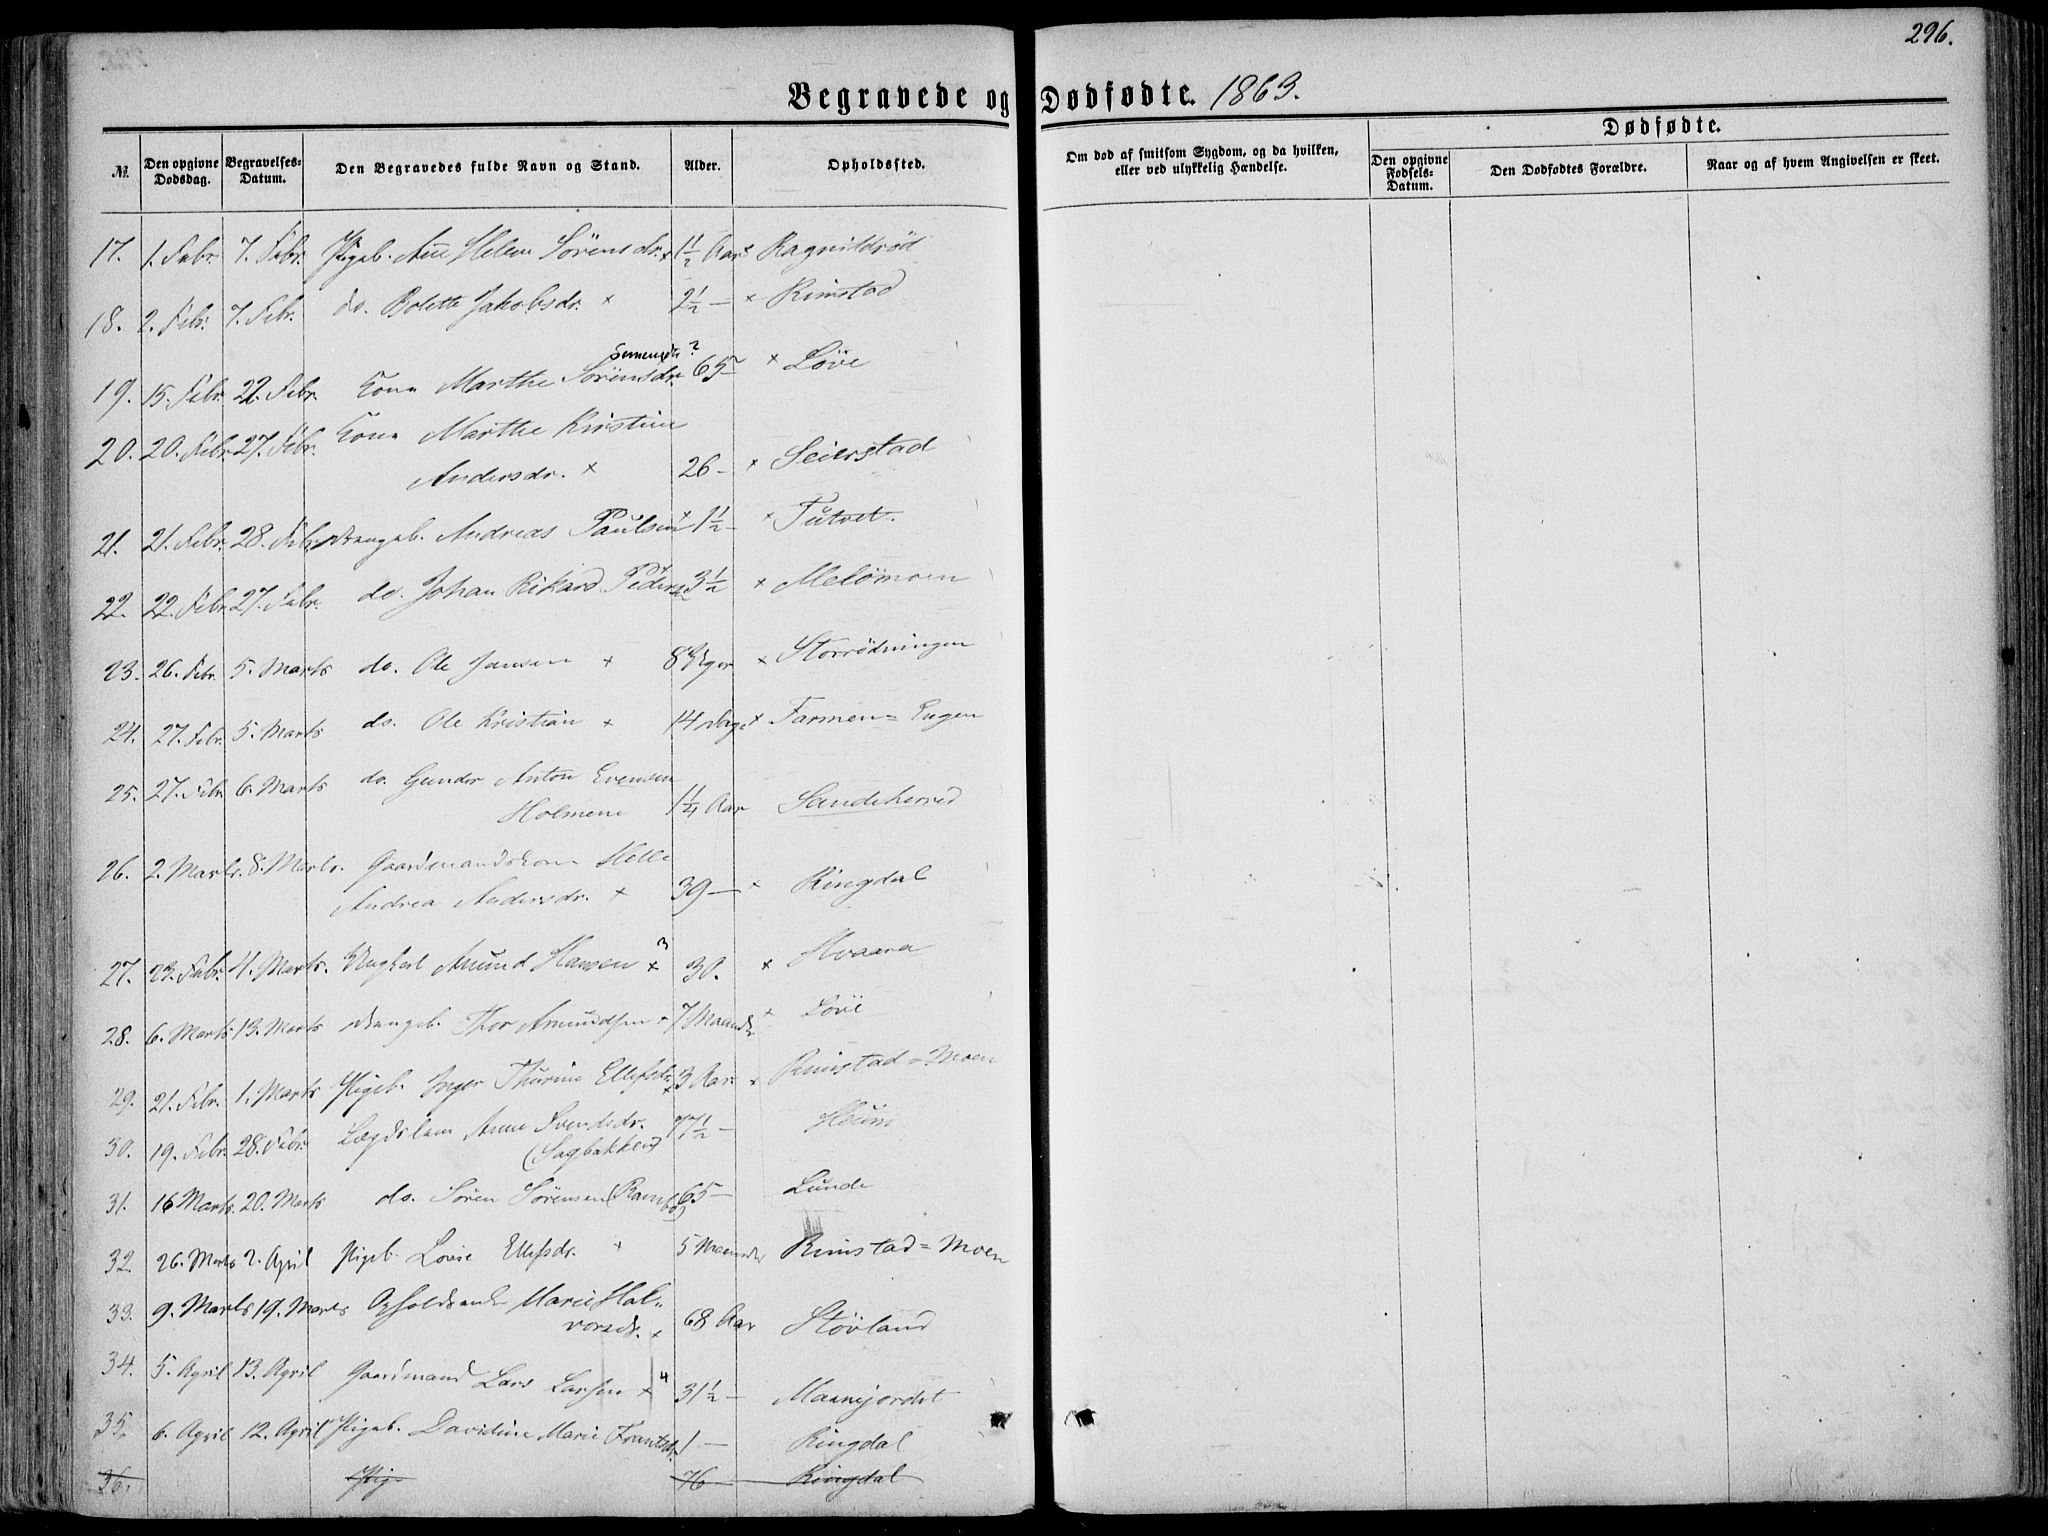 296.
Begravede og Dødfødte. 1863.
№ Den opgivne Dødsdag. Begravelses-Datum. Den Begravedes fulde Navn og Stand. Alder. Opholdssted. Om død af smitsom Sygdom, og da hvilken, eller ved ulykkelig Hændelse. Dødfødte. Den opgivne Fødsels-Datum. Den Dødfødtes Forældre. Naar og af hvem Angivelsen er skeet.
17. 1. Febr. 7. Febr. Pigeb. Ane Helene Sörensdr. x 1½ Aar x Ragnildröd
18. 2. Febr. 7. Febr. do. Bolette Jakobsdr. x 2½ — x Rimstad
19. 15. Febr. 22. Febr. Kone Marthe Sörensdr. ? 65 — x Löve
20. 20. Febr. 27. Febr. Kone Marthe Kirstine
Andersdr. x 26 — x Seierstad
21. 21. Febr. 28. Febr. Drengeb. Andreas Paulsen x 1½ — x Tutvet.
22. 22. Febr. 27. Febr. do. Johan Rikard Peders. 3½ x Melömoen
23. 26. Febr. 5. Marts do. Ole Jansen x 8 Uger x Storrödningen
24. 27. Febr. 5. Marts do. Ole Kristian x 14 Dage x Farmen=Engen
25. 27. Febr. 6. Marts do. Gunder Anton Evensen
Holmene 1¼ Aar Sandeherred
26. 2. Marts. 8. Marts. Gaardmandskone Helle
Andrea Andersdr. x 39 — x Ringdal
27. 23. Febr. 4. Marts. Ungkarl Amund Hansen x 3 30. x Hvaara
28. 6. Marts 13. Marts Drengeb. Thor Amundsen x 7 Maaneder x Löve
29. 21. Febr. 1. Marts Pigeb. Inger Thurine Ellefsdr. x 3 Aar x Rimstad=Moen
30. 19. Febr. 28. Febr. Lægdslem Anne Svendsdr.
(Sagbakken) 77½ — Houm
31. 16 Marts. 20. Marts do. Sören Sörensen (Rambö) 65 — Lunde
32. 26. Marts 2. April Pigeb. Lovise Ellefsdr. x 5 Maaneder Rimstad=Moen
33. 9. Marts 19. Marts Opholdsenke Marie Hal-
vorsdr. x 68 Aar Stövland
34. 5. April 13. April Gaardmand Lars Larsen x 4 31½ — Maanejordet
35. 6. April 12. April Pigeb. Davidine Marie Frantsdr. 1 — Ringdal
36. Pige 76 — Ringdal